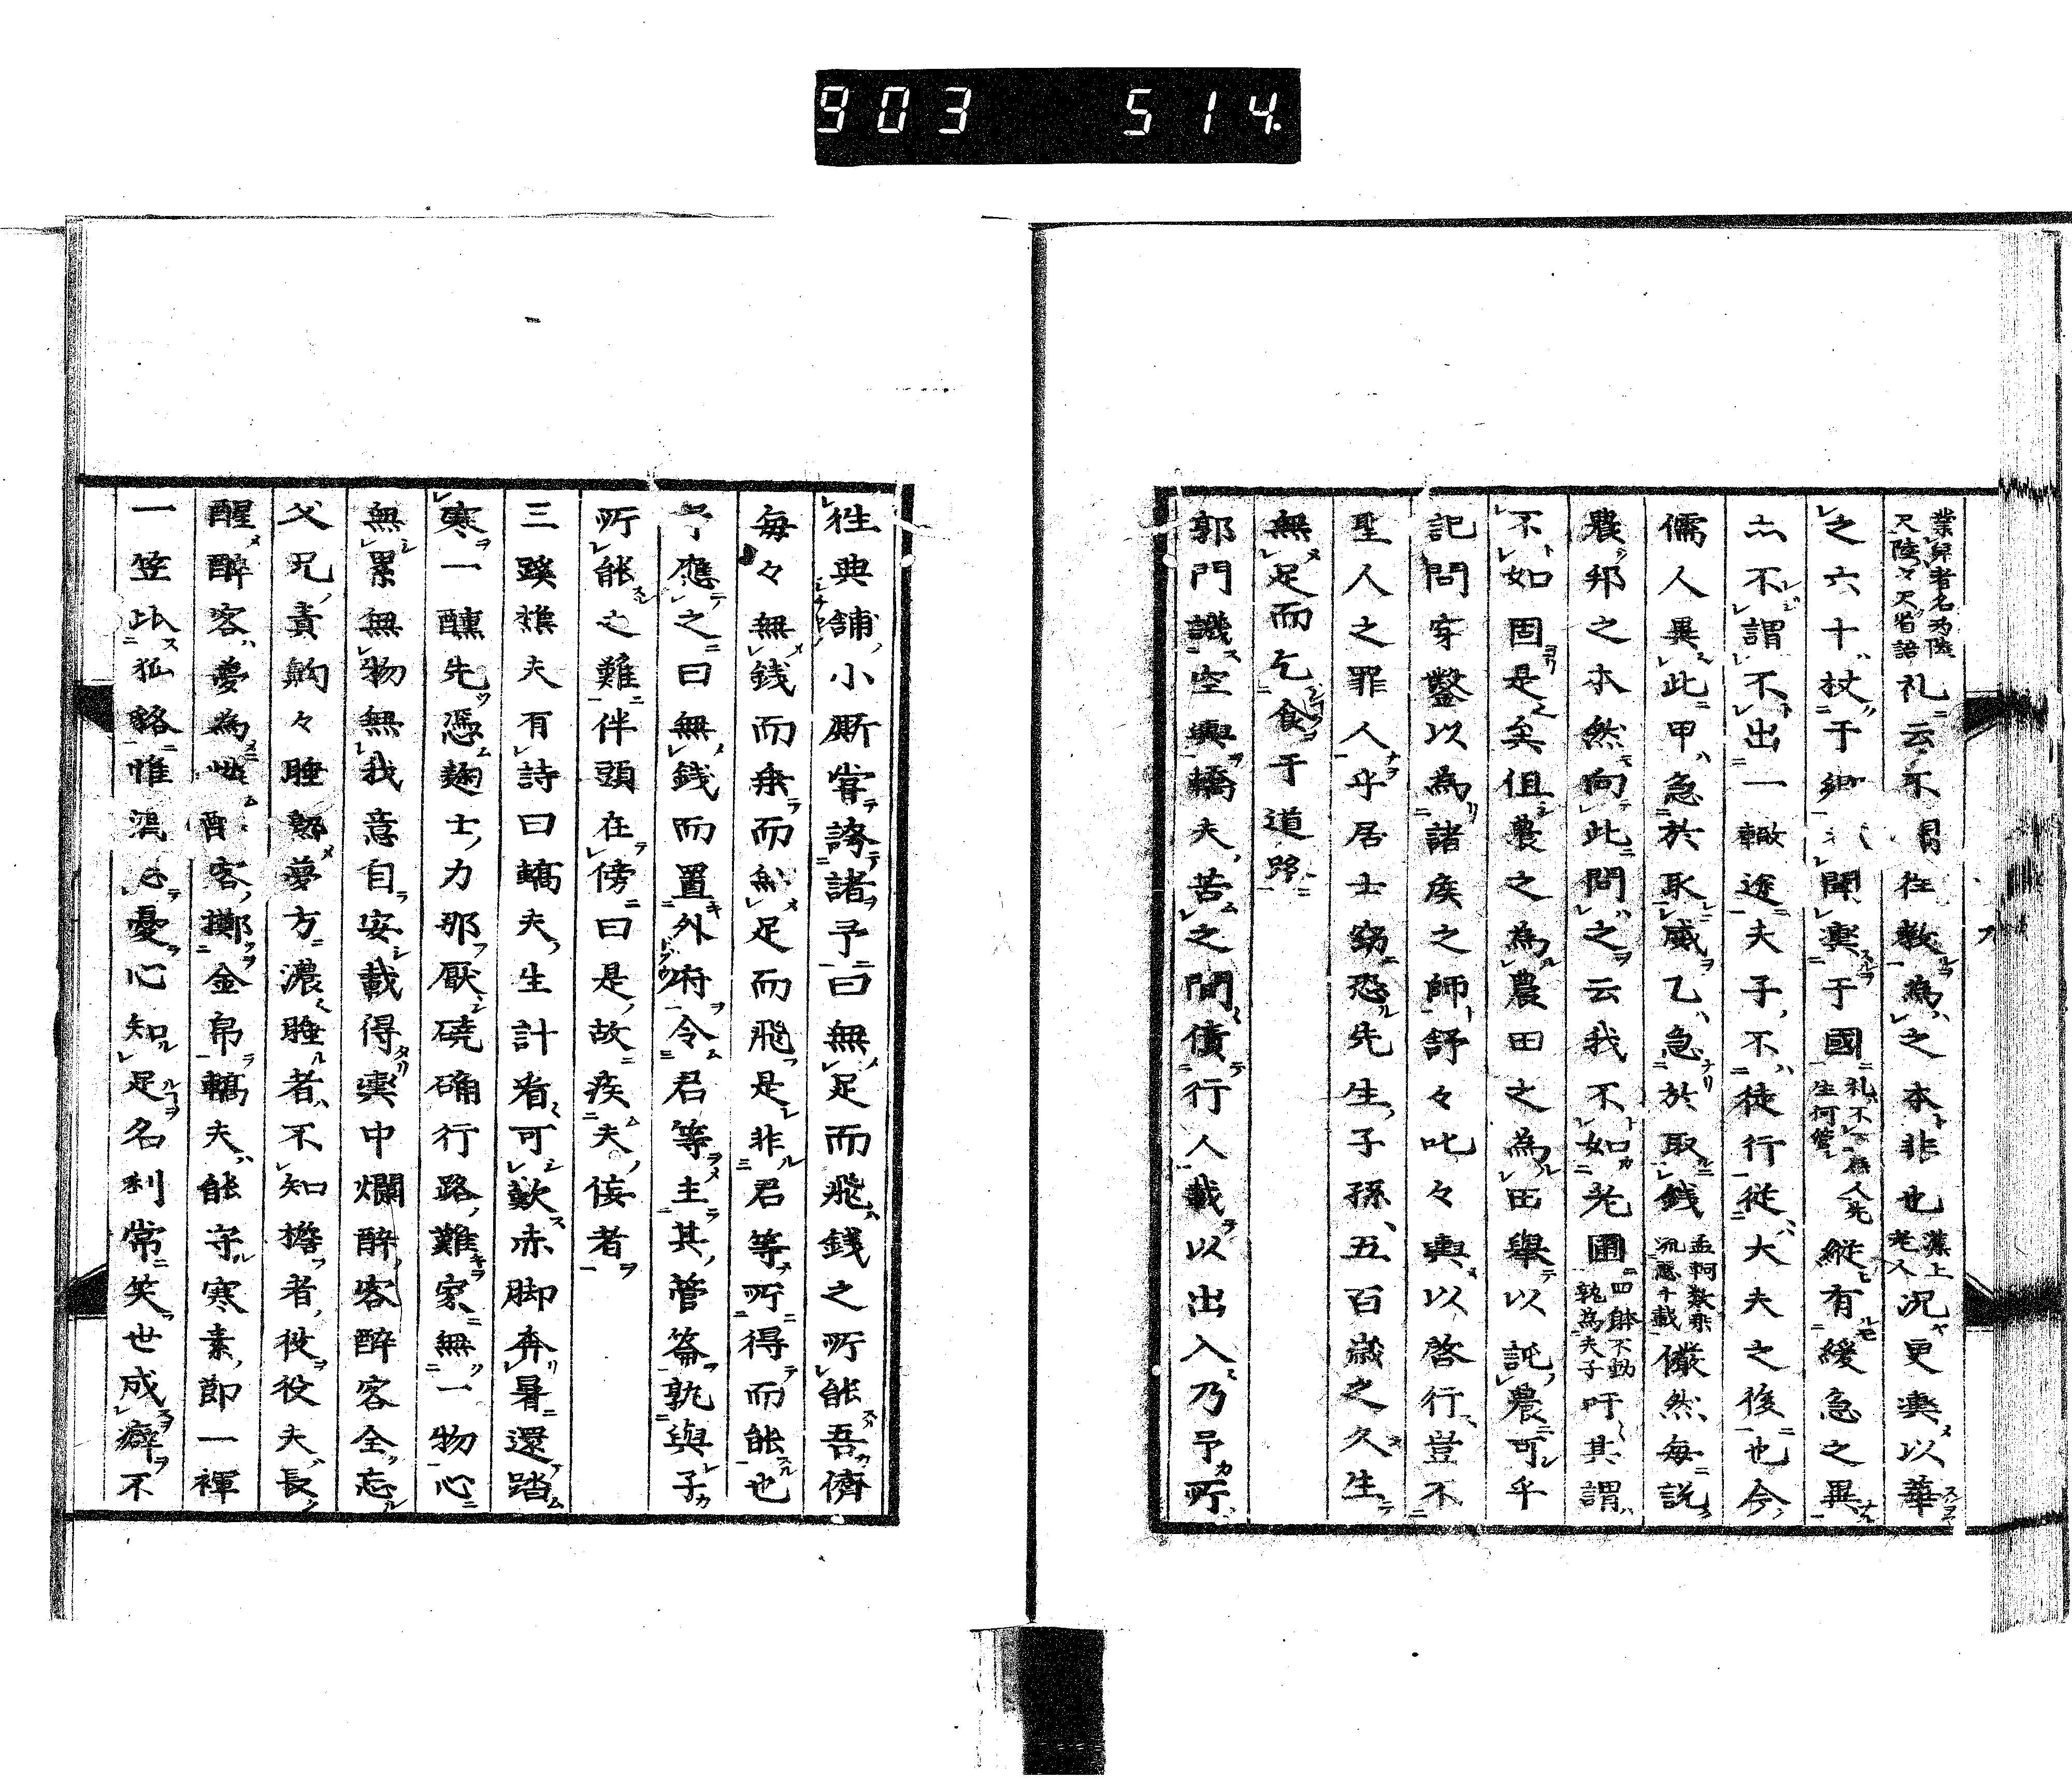 903 514.
業綍者名為陸
尺陸々天省語
礼云不 往教為之本非也
漢上
老人
况更輿以華
之六十杖于 聞輿于國
礼不
生何管 人先
縦有緩急之異
亠不謂不出一轍途夫子不徒行従大夫之後也今
儒人異此甲急於取威乙急於取銭
孟軻
流 十載
儼然毎説
農邦之本然向此問之云我不如老圃
四体不動
孰為夫子
吁其謂
不如固是矣但農之為農田之為田舉以託農可乎
記問穿鑿以為諸侯之師舒々叱々輿以啓行豈不
聖人之罪人乎居士窃恐先生子孫五百歳之久生
無足而乞食于道路
郭門譏空輿轎夫苦之間債行人載以出入乃予所
徃典舗小厮嘗誇諸予曰無足而飛銭之所能吾儕
毎々無銭而乗而無足而飛是非君等所得而能也
予應之曰無銭而置外府令君等主其管籥孰與子
所能之難伴頭在傍曰是故疾夫侫者
三蹊樵夫有詩曰轎夫生計看可歎赤脚奔暑還踏
寒一醺先憑麹士力那厭磽确行路難家無一物心
無累無物無我意自安載得輿中爛醉客醉客全忘
父兄責齁々睡熟夢方濃睡者不知擔者役役夫長
醒醉客夢為 醉客擲金帛轎夫能守寒素節一褌
一笠比狐貉惟 心憂心知足名利常笑世成癖不